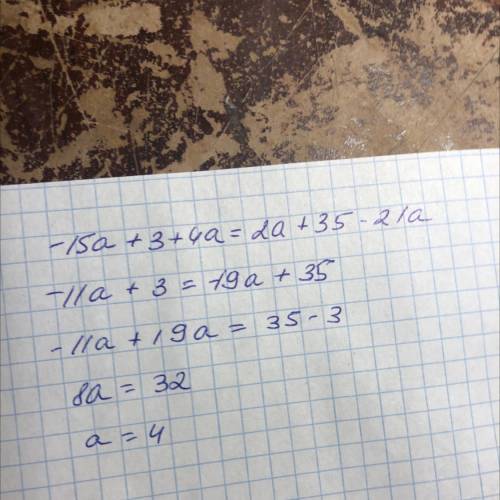 -15a + 3 + 4a = 2a + 35 - 21a
-11a + 3 = -19a + 35
-11a + 19a = 35 - 3
8a = 32
a = 4